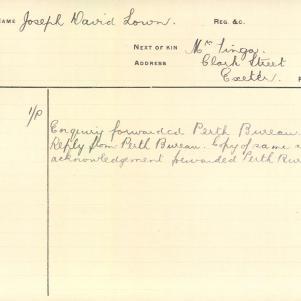 NAME Joseph David Lown. REG. &C.
NEXT OF KIN Mr Linga.
ADDRESS Clark Street
Exeter.
1/P
Enquiry forwarded Perth Bureau.
Reply from Perth Bureau. Copy of same
acknowledgement forwarded Perth